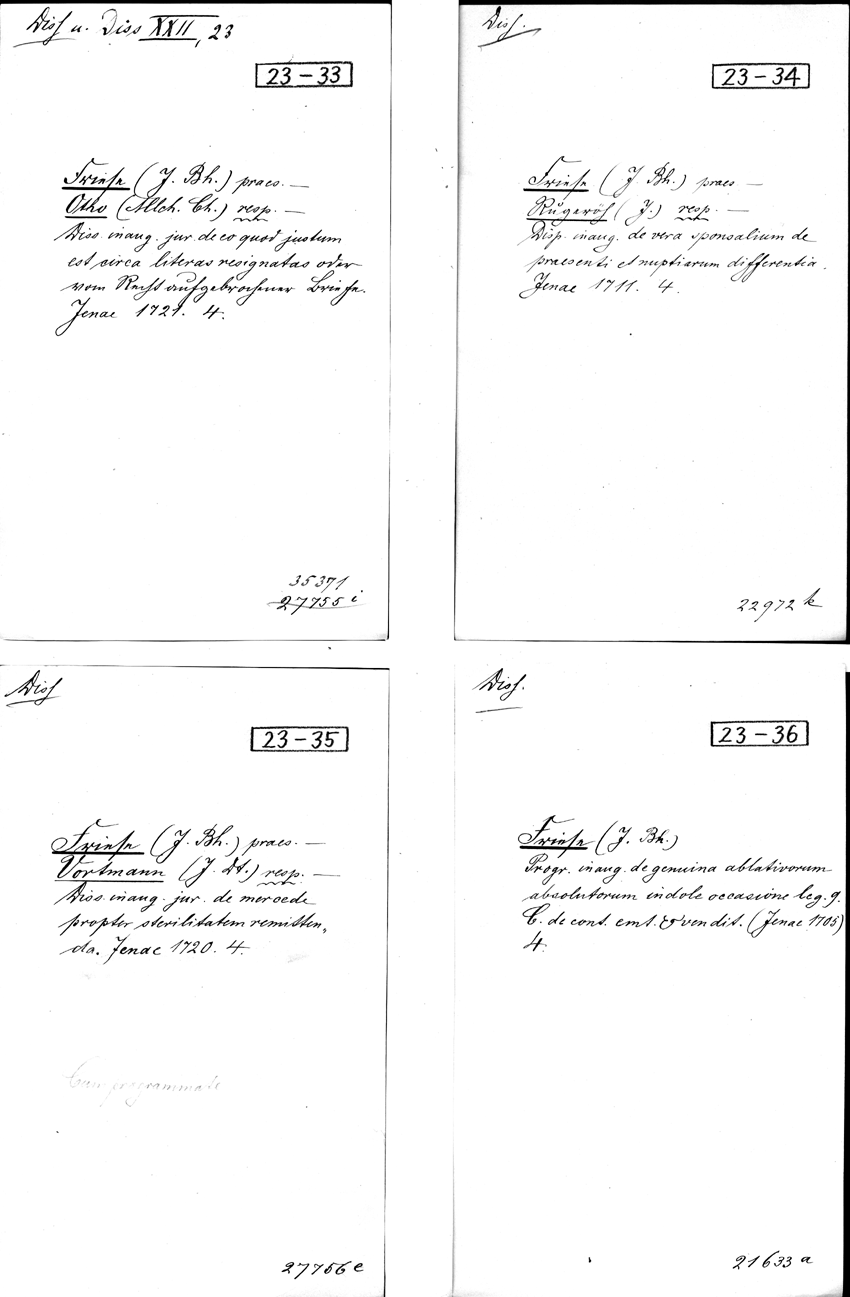 Diss u. Diss XXII, 23
23-33
Friese (J. Bh.) praes. —
Otho (Mlch. Ch.) resp. —
Diss. inaug. jur. de eo quod justum
est circa literas resignatas oder
vom Recht aufgebrochener Briefe.
Jenae 1721. 4.
35371
27755 i
Diss.
23-34
Friese (J. Bh.) praes —
(J.) resp. —
Disp. inaug. de vera sponsalium de
praesenti et nuptiarum differentia.
Jenae 1711. 4.
22972 k
Diss
23-35
Friese (J. Bh.) praes. —
Vortmann (J. Dt.) resp. —
Diss. inaug. jur. de mercede
propter sterilitatem remitten„
da. Jenae 1720. 4.
Cum programmate
27756 e
Diss.
23-36
Friese (J. Bh.)
Progr. inaug. de genuina ablativorum
absolutorum indole occasione leg. 9.
C. de cont. emt. & vendit. (Jenae 1705)
4.
21633 a